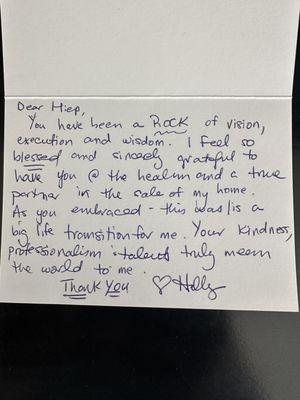 Dear Hiep,
You have been a ROCK of vision,
execution and wisdom. I feel so
blessed and sincerely grateful to
have you @ the healm and a true
partner in the sale of my home.
As you embraced - this was/is a
big life transition for me. Your kindness,
professionalism + talent truly mean
the world to me.
Thank You ♡ Holly